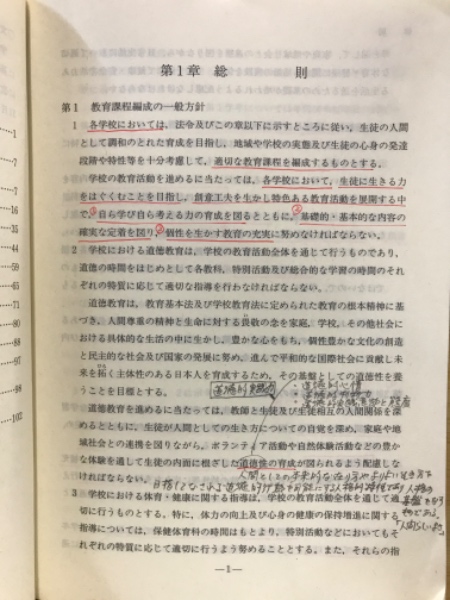 第1章 総 則
第1 教育課程編成の一般方針
1 各学校においては，法令及びこの章以下に示すところに従い，生徒の人間
として調和のとれた育成を目指し，地域や学校の実態及び生徒の心身の発達
段階や特性等を十分考慮して，適切な教育課程を編成するものとする。
学校の教育活動を進めるに当たっては，各学校において，生徒に生きる力
をはぐくむことを目指し，創意工夫を生かし特色ある教育活動を展開する中
で，①自ら学び自ら考える力の育成を図るとともに，②基礎的・基本的な内容の
確実な定着を図り，③個性を生かす教育の充実に努めなければならない。
2 学校における道徳教育は，学校の教育活動全体を通じて行うものであり，
道徳の時間をはじめとして各教科，特別活動及び総合的な学習の時間のそれ
ぞれの特質に応じて適切な指導を行わなければならない。
道徳教育は，教育基本法及び学校教育法に定められた教育の根本精神に基
づき，人間尊重の精神と生命に対する畏敬の念を家庭，学校，その他社会に
おける具体的な生活の中に生かし，豊かな心をもち，個性豊かな文化の創造
と民主的な社会及び国家の発展に努め，進んで平和的な国際社会に貢献し未
来を拓く主体性のある日本人を育成するため，その基盤としての道徳性を養
うことを目標とする。
・道徳的心情
道徳教育を進めるに当たっては，教師と生徒及び生徒相互の人間関係を深
めるとともに，生徒が人間としての生き方についての自覚を深め，家庭や地
域社会との連携を図りながら，ボランティア活動や自然体験活動などの豊か
な体験を通して生徒の内面に根ざした道徳性の育成が図られるよう配慮しな
ければならない。
学校における体育・健康に関する指導は，学校の教育活動全体を通じて適
切に行うものとする。特に，体力の向上及び心身の健康の保持増進に関する
指導については，保健体育科の時間はもとより，特別活動などにおいてもそ
れぞれの特質に応じて適切に行うよう努めることとする。また，それらの指
—1—
1
7
7
16
35
44
59
65
71
80
88
98
102